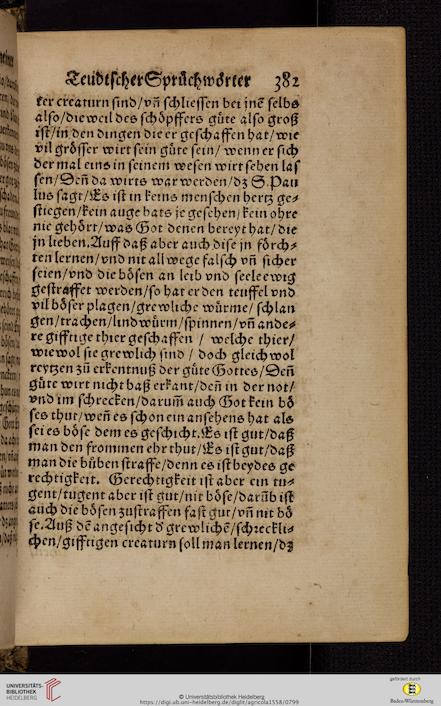 Teudtscher Sprüchwörter 382
ter creaturn sind/vñ schliessen bei jnẽ selbs
also/dieweil des schöpffers güte also groß
ist/in den dingen die er geschaffen hat/wie
vil grösser wirt sein güte sein/wenn er sich
der mal eins in seinem wesen wirt sehen las
sen/Deñ da wirts war werden/dz S.Pau
lus sagt/Es ist in keins menschen hertz ge-
stiegen/kein auge hats je gesehen/kein ohre
nie gehört/was Got denen bereyt hat/die
jn lieben.Auff daß aber auch dise jn förch-
ten lernen/vnd nit all wege falsch vñ sicher
seien/vnd die bösen an leib vnd seele ewig
gestraffet werden/so hat er den teuffel vnd
vil böser plagen/grewliche würme/schlan
gen/trachen/lindwürm/spinnen/vñ ande-
re gifftige thier geschaffen / welche thier/
wiewol sie grewlich sind / doch gleichwol
reytzen zů erkentnuß der güte Gottes/Deñ
güte wirt nicht baß erkant/deñ in der not/
vnd im schrecken/darum̃ auch Got kein bö
ses thut/weñ es schon ein ansehens hat als
sei es böse dem es geschicht.Es ist gut/daß
man den frommen ehr thut/Es ist gut/daß
man die büben straffe/denn es ist beydes ge
rechtigkeit. Gerechtigkeit ist aber ein tu-
gent/tugent aber ist gut/nit böse/darũb ist
auch die bösen zustraffen fast gut/vñ nit bö
se.Auß dẽ angesicht d' grewlichẽ/schreckli-
chen/gifftigen creaturn soll man lernen/dz
UNIVERSITÄTS-
BIBLIOTHEK
HEIDELBERG
© Universitätsbibliothek Heidelberg
https://digi.ub.uni-heidelberg.de/diglit/agricola1558/0799
gefördert durch
Baden-Württemberg